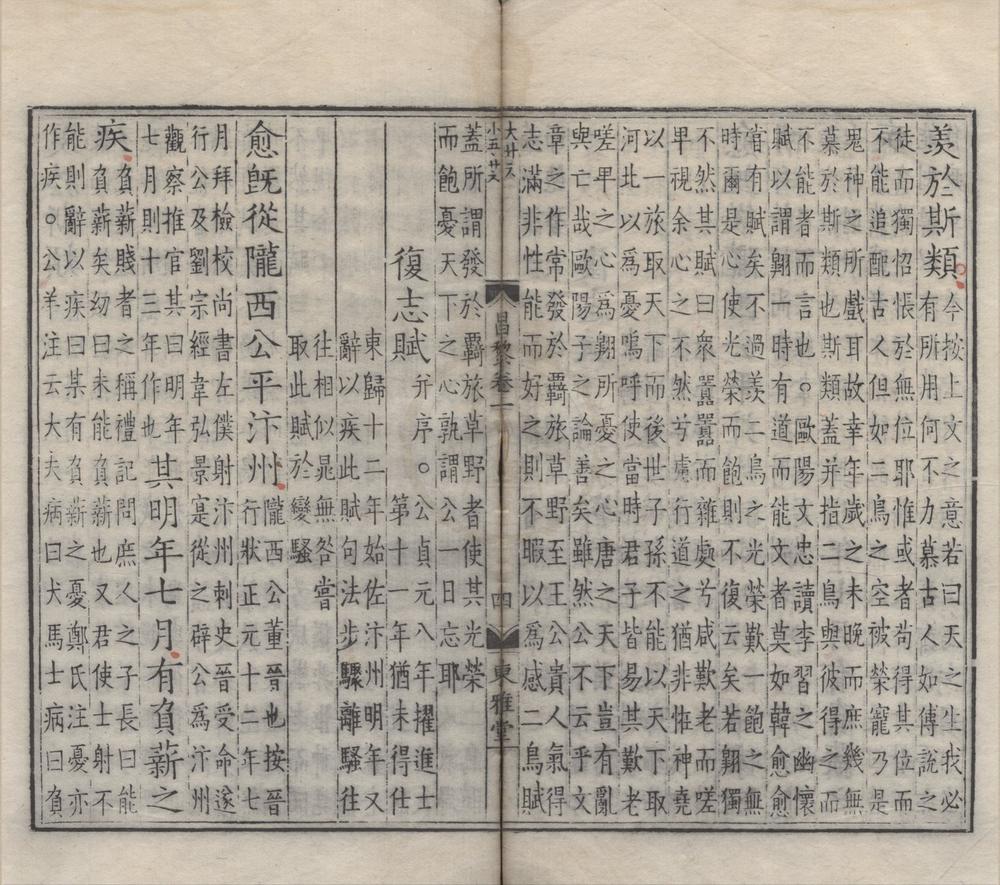 羨於斯類
今按上文之意若曰天之生我必
有所用何不力慕古人如傅說之
徒而獨怊悵於無位耶惟或者苟得其位而
不能追配古人但如二鳥之空被榮寵乃是
鬼神之所戲耳故幸年歲之未晚而庶幾無
慕於斯類也斯類蓋并指二鳥與彼得之而
不能者而言也○歐陽文忠讀李習之幽懷
賦以謂翺一時有道而能文者莫如韓愈愈
甞有賦矣不過羨二鳥之光榮歎一飽之無
時爾是心使光榮而飽則不復云矣若翺獨
不然其賦曰衆囂囂而雜處兮咸歎老而嗟
卑視余心之不然兮慮行道之猶非恠神堯
以一旅取天下而後世子孫不能以天下取
河北以爲憂嗚呼使當時君子皆易其歎老
嗟卑之心爲翺所憂之心唐之天下豈有亂
與亡哉歐陽子之論善矣雖然公不云乎文
章之作常發於羇旅草野至王公貴人氣得
志滿非性能而好之則不暇以爲感二鳥賦
大廿二
小五廿文
昌黎卷一
四
東雅堂
蓋所謂發於羇旅草野者使其光榮
而飽憂天下之心孰謂公一日忘耶
復志賦
并序○公貞元八年擢進士
第十一年猶未得仕
東歸十二年始佐汴州明年又
辭以疾此賦句法步驟離騷往
往相似晁無咎嘗
取此賦於變騷
愈旣從隴西公平汴州
隴西公董晉也按晉
行狀正元十二年七
月拜檢校尚書左僕射汴州刺史晉受命遂
行公及劉宗經韋弘景寔從之辟公爲汴州
觀察推官其曰明年
七月則十三年作也
其明年七月有負薪之
疾
負薪賤者之稱禮記問庶人之子長曰能
負薪矣幼曰未能負薪也又君使士射不
能則辭以疾曰某有負薪之憂鄭氏注憂亦
作疾○公羊注云大夫病曰犬馬士病曰負